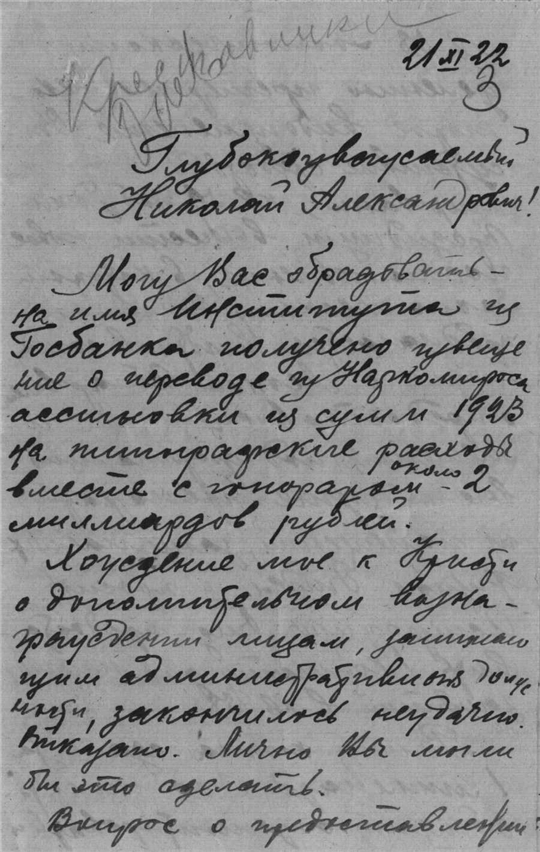 21 XI 22
3
Глубокоуважаемый
Николай Александрович!
Могу Вас обрадовать –
на имя Института из
Госбанка получено извеще
ние о переводе из Наркомпроса
ассигновки из сумм 1923
на типографские расходы
вместе с гонораром – около 2
миллиардов рублей.
Хождение мое к Кристи
о дополнительном возна-
граждении лицам, занимаю
щим административныя долж
ности, закончилось неудачно.
Отказано. Лично Вы могли
бы это сделать.
Вопрос о предоставлении